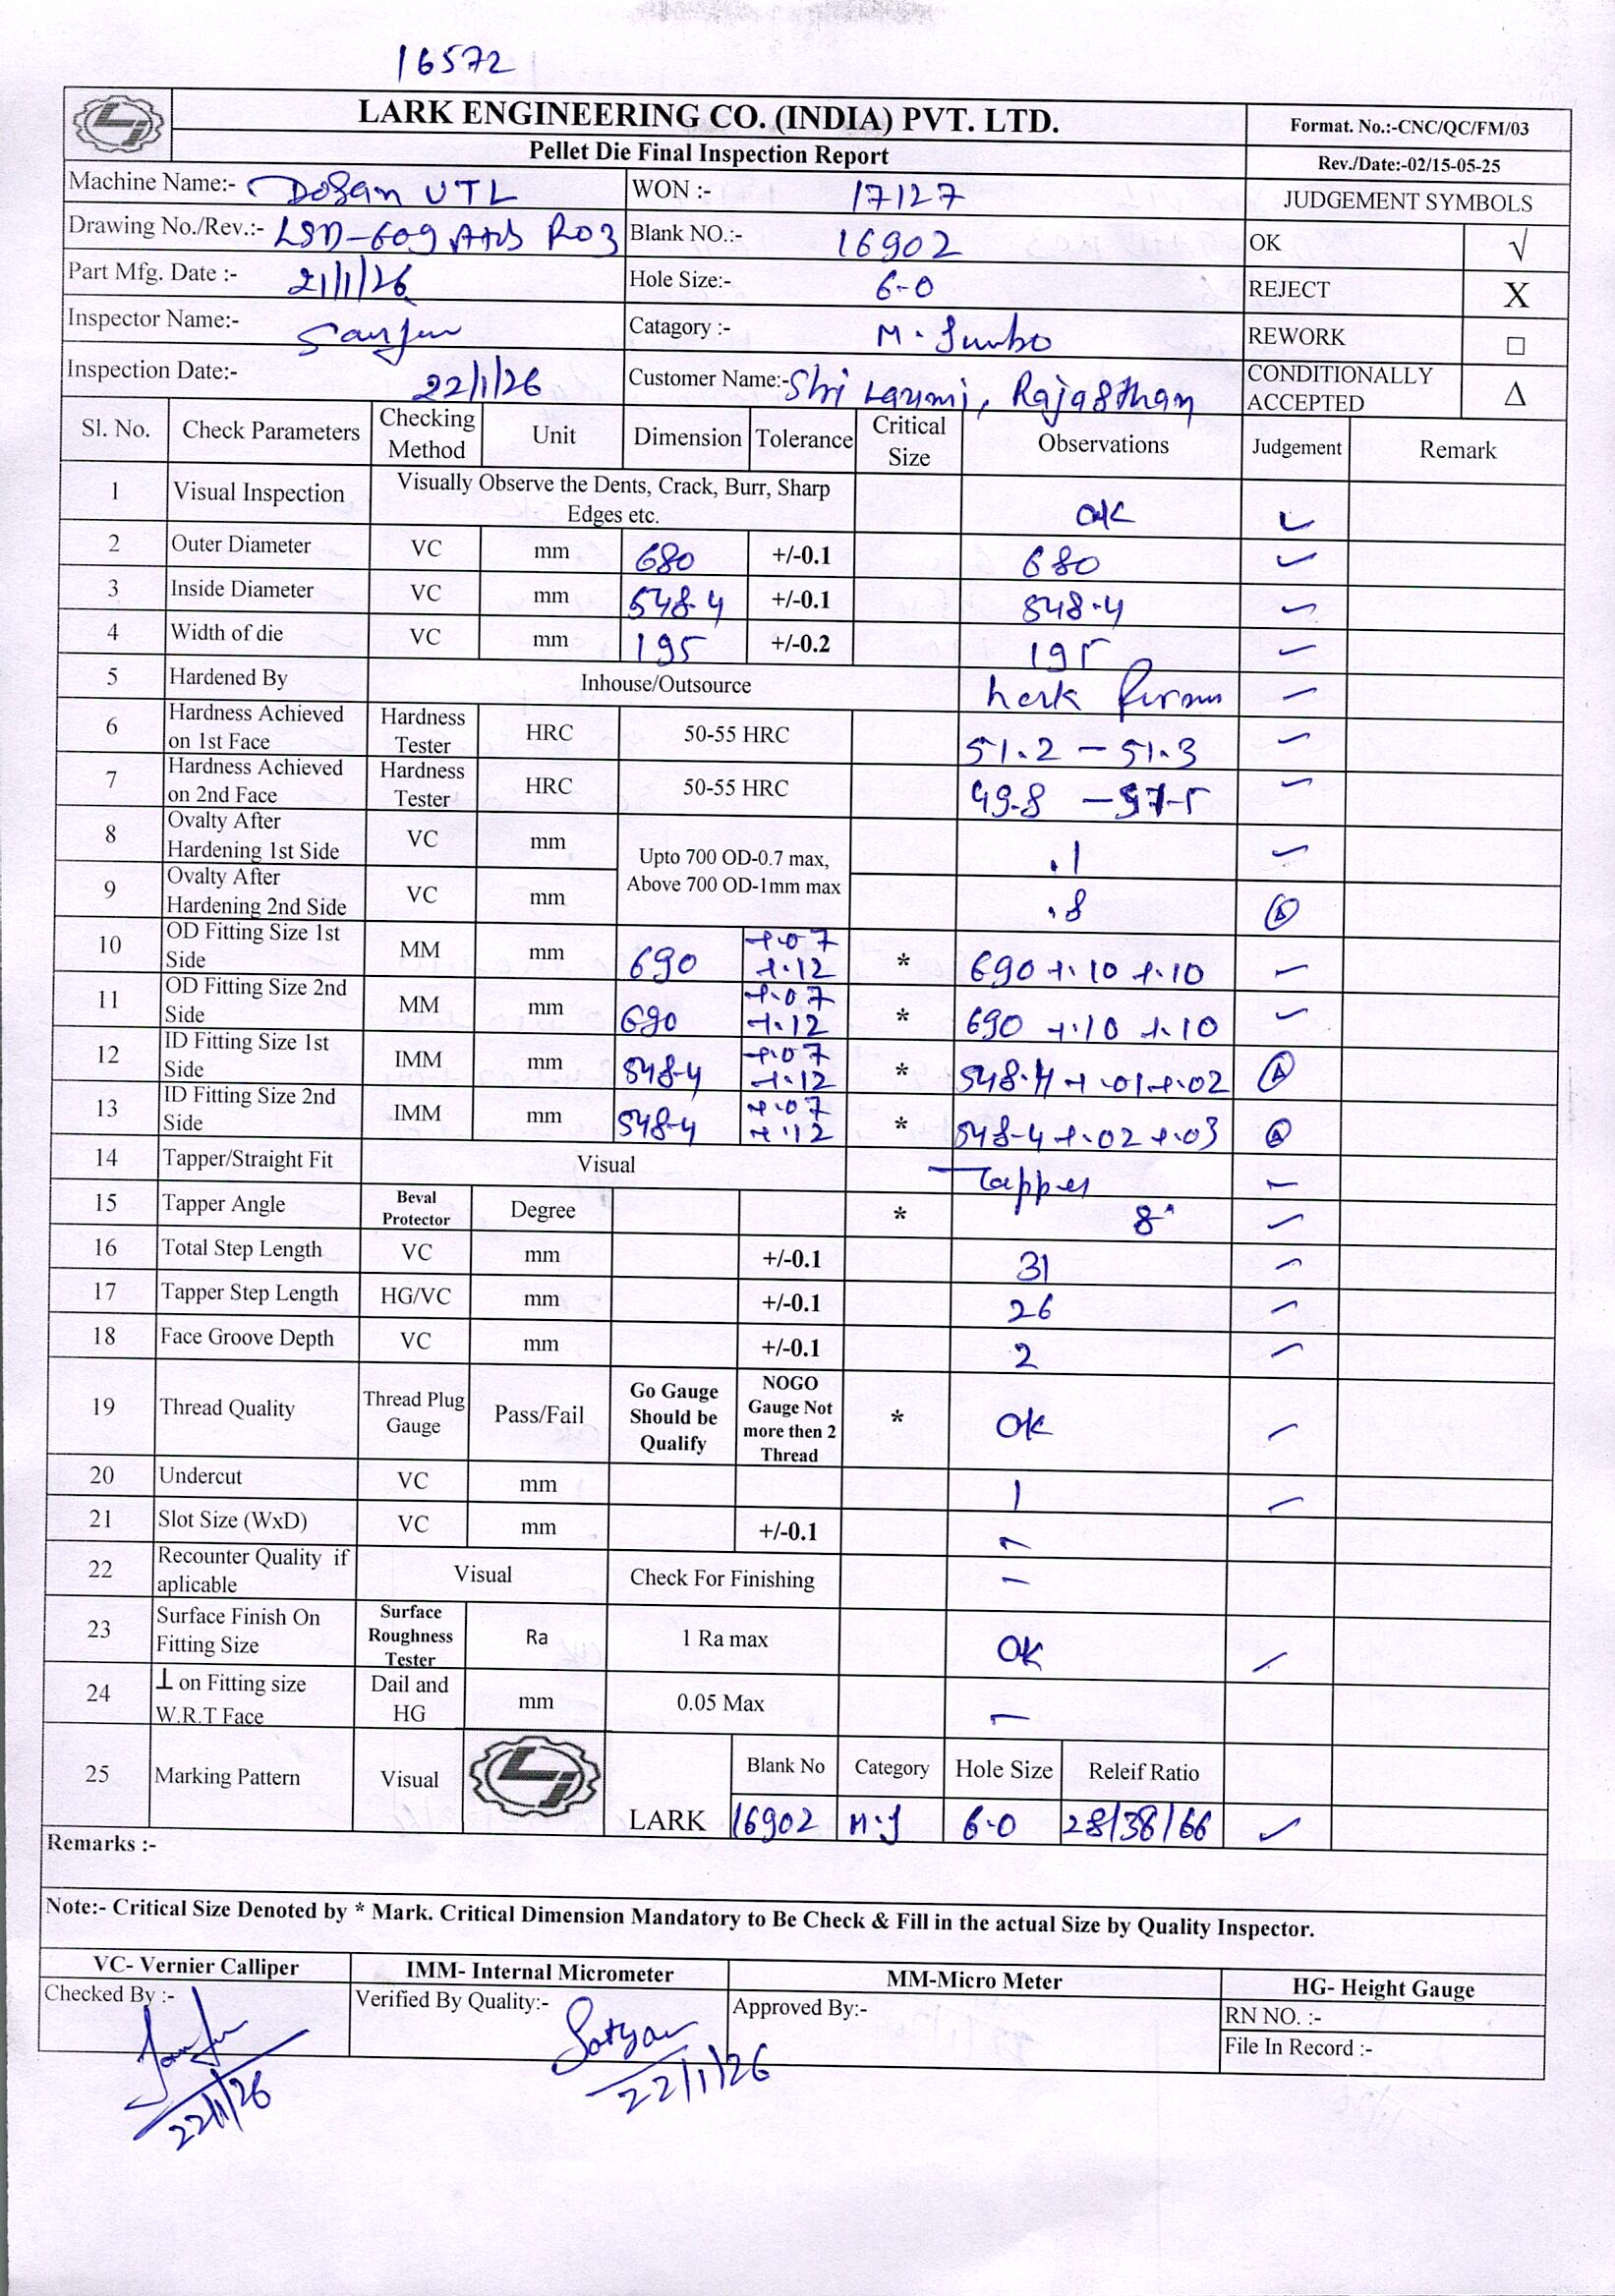 16572
LARK ENGINEERING CO. (INDIA) PVT. LTD.
Format. No.:-CNC/QC/FM/03
Pellet Die Final Inspection Report
Rev./Date:-02/15-05-25
Machine Name:- Dosan UTL WON :- 17127 JUDGEMENT SYMBOLS
Drawing No./Rev.:- LSD-609 R03 Blank NO.:- 16902 OK √
Part Mfg. Date :- 21/1/26 Hole Size:- 6-0 REJECT X
Inspector Name:- Catagory :- M. Jumbo REWORK □
Inspection Date:- 22/1/26 Customer Name:- Shri Laxmi, Rajasthan CONDITIONALLY ACCEPTED Δ
Sl. No. Check Parameters Checking Method Unit Dimension Tolerance Critical Size Observations Judgement Remark
1 Visual Inspection Visually Observe the Dents, Crack, Burr, Sharp Edges etc. OK ✓
2 Outer Diameter VC mm 680 +/-0.1 680 ✓
3 Inside Diameter VC mm 548.4 +/-0.1 548.4 ✓
4 Width of die VC mm 195 +/-0.2 195 ✓
5 Hardened By Inhouse/Outsource ✓
6 Hardness Achieved on 1st Face Hardness Tester HRC 50-55 HRC 51.2 - 51.3 ✓
7 Hardness Achieved on 2nd Face Hardness Tester HRC 50-55 HRC 49.8 - ✓
8 Ovalty After Hardening 1st Side VC mm Upto 700 OD-0.7 max, Above 700 OD-1mm max .1 ✓
9 Ovalty After Hardening 2nd Side VC mm .8
10 OD Fitting Size 1st Side MM mm 690 +.07 +.12 * 690 +.10 +.10 ✓
11 OD Fitting Size 2nd Side MM mm 690 +.07 +.12 * 690 +.10 +.10 ✓
12 ID Fitting Size 1st Side IMM mm 548.4 +.07 +.12 * 548.4 +.01 +.02
13 ID Fitting Size 2nd Side IMM mm 548.4 +.07 +.12 * 548.4 +.02 +.03
14 Tapper/Straight Fit Visual Tapper ✓
15 Tapper Angle Beval Protector Degree * 8° ✓
16 Total Step Length VC mm +/-0.1 31 ✓
17 Tapper Step Length HG/VC mm +/-0.1 26 ✓
18 Face Groove Depth VC mm +/-0.1 2 ✓
19 Thread Quality Thread Plug Gauge Pass/Fail Go Gauge Should be Qualify NOGO Gauge Not more then 2 Thread * OK ✓
20 Undercut VC mm 1 ✓
21 Slot Size (WxD) VC mm +/-0.1 -
22 Recounter Quality if aplicable Visual Check For Finishing -
23 Surface Finish On Fitting Size Surface Roughness Tester Ra 1 Ra max OK ✓
24 ⊥ on Fitting size W.R.T Face Dail and HG mm 0.05 Max -
25 Marking Pattern Visual LARK Blank No Category Hole Size Releif Ratio
16902 M.J 6.0 28/38/66 ✓
Remarks :-
Note:- Critical Size Denoted by * Mark. Critical Dimension Mandatory to Be Check & Fill in the actual Size by Quality Inspector.
VC- Vernier Calliper IMM- Internal Micrometer MM-Micro Meter HG- Height Gauge
Checked By :- Verified By Quality:- Satyan Approved By:- RN NO. :-
File In Record :-
22/1/26 22/1/26